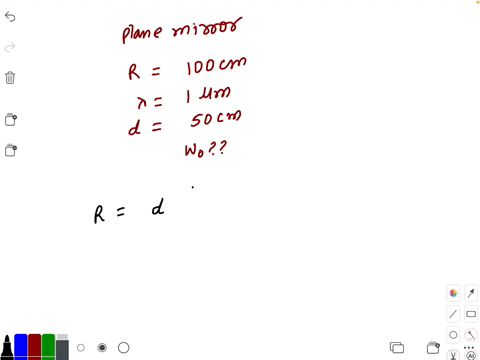 plane mirror
R = 100 cm
λ = 1 μm
d = 50 cm
W₀ ??
R = d